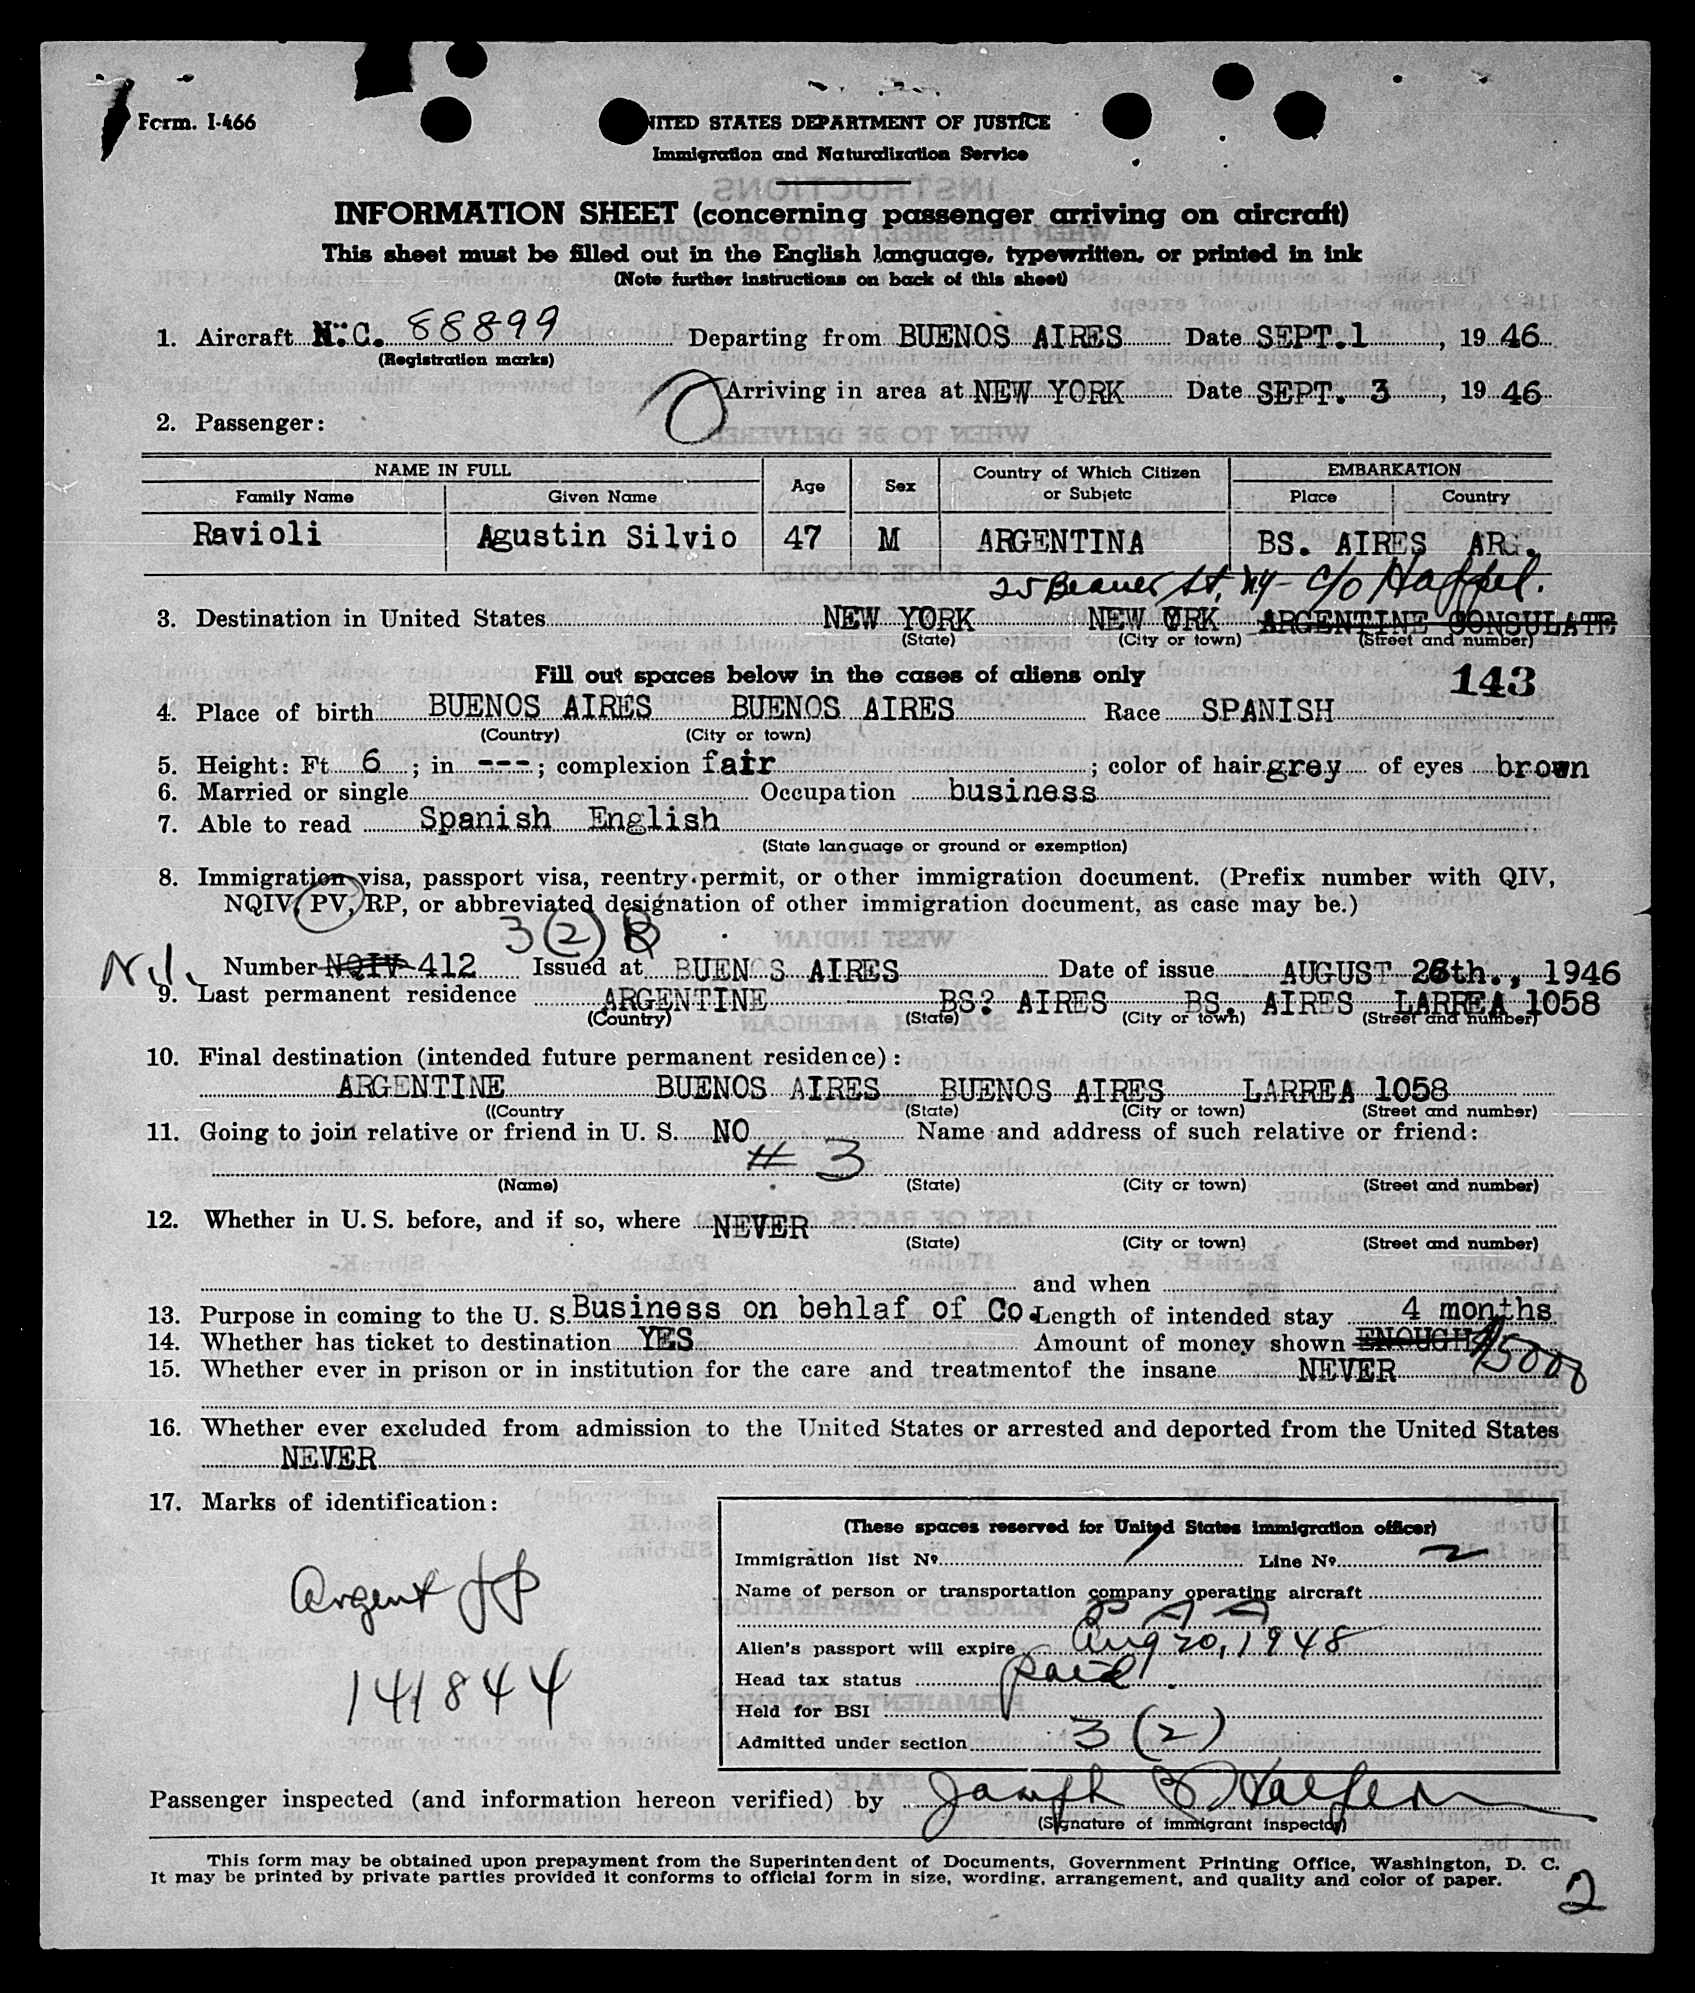 Form. I-466
NITED STATES DEPARTMENT OF JUSTICE
Immigration and Naturalization Service
INFORMATION SHEET (concerning passenger arriving on aircraft)
This sheet must be filled out in the English language, typewritten, or printed in ink
(Note further instructions on back of this sheet)
1. Aircraft N.C. 88899 Departing from BUENOS AIRES Date SEPT.1, 1946
(Registration marks)
Arriving in area at NEW YORK Date SEPT. 3, 1946
2. Passenger:
NAME IN FULL Age Sex Country of Which Citizen or Subjetc EMBARKATION
Family Name Given Name Place Country
Ravioli Agustin Silvio 47 M ARGENTINA BS. AIRES ARG.
25 Beaver St, NY - c/o Haffel.
3. Destination in United States NEW YORK NEW YORK ARGENTINE CONSULATE
(State) (City or town) (Street and number)
Fill out spaces below in the cases of aliens only 143
4. Place of birth BUENOS AIRES BUENOS AIRES Race SPANISH
(Country) (City or town)
5. Height: Ft 6; in ---; complexion fair; color of hair grey of eyes brown
6. Married or single Occupation business
7. Able to read Spanish English
(State language or ground or exemption)
8. Immigration visa, passport visa, reentry permit, or other immigration document. (Prefix number with QIV,
NQIV, PV, RP, or abbreviated designation of other immigration document, as case may be.)
3 (2) B
Number NQIV 412 Issued at BUEN S AIRES Date of issue AUGUST 26th., 1946
9. Last permanent residence ARGENTINE BS? AIRES BS. AIRES LARREA 1058
(Country) (State) (City or town) (Street and number)
10. Final destination (intended future permanent residence):
ARGENTINE BUENOS AIRES BUENOS AIRES LARREA 1058
((Country (State) (City or town) (Street and number)
11. Going to join relative or friend in U. S. NO Name and address of such relative or friend:
# 3
(Name) (State) (City or town) (Street and number)
12. Whether in U. S. before, and if so, where NEVER
(State) (City or town) (Street and number)
and when
13. Purpose in coming to the U. S. Business on behlaf of Co. Length of intended stay 4 months
14. Whether has ticket to destination YES Amount of money shown ENOUGH $1500
15. Whether ever in prison or in institution for the care and treatmentof the insane NEVER
16. Whether ever excluded from admission to the United States or arrested and deported from the United States
NEVER
17. Marks of identification:
(These spaces reserved for United States immigration officer)
Immigration list No. 1 Line No. 2
Name of person or transportation company operating aircraft
P A A
Argent
141844
Alien's passport will expire Aug 20, 1948
Head tax status paid
Held for BSI
Admitted under section 3 (2)
Passenger inspected (and information hereon verified) by Joseph
(Signature of immigrant inspector)
This form may be obtained upon prepayment from the Superintendent of Documents, Government Printing Office, Washington, D. C.
It may be printed by private parties provided it conforms to official form in size, wording, arrangement, and quality and color of paper.
2